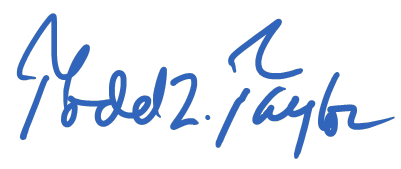 Todd Z. Taylor